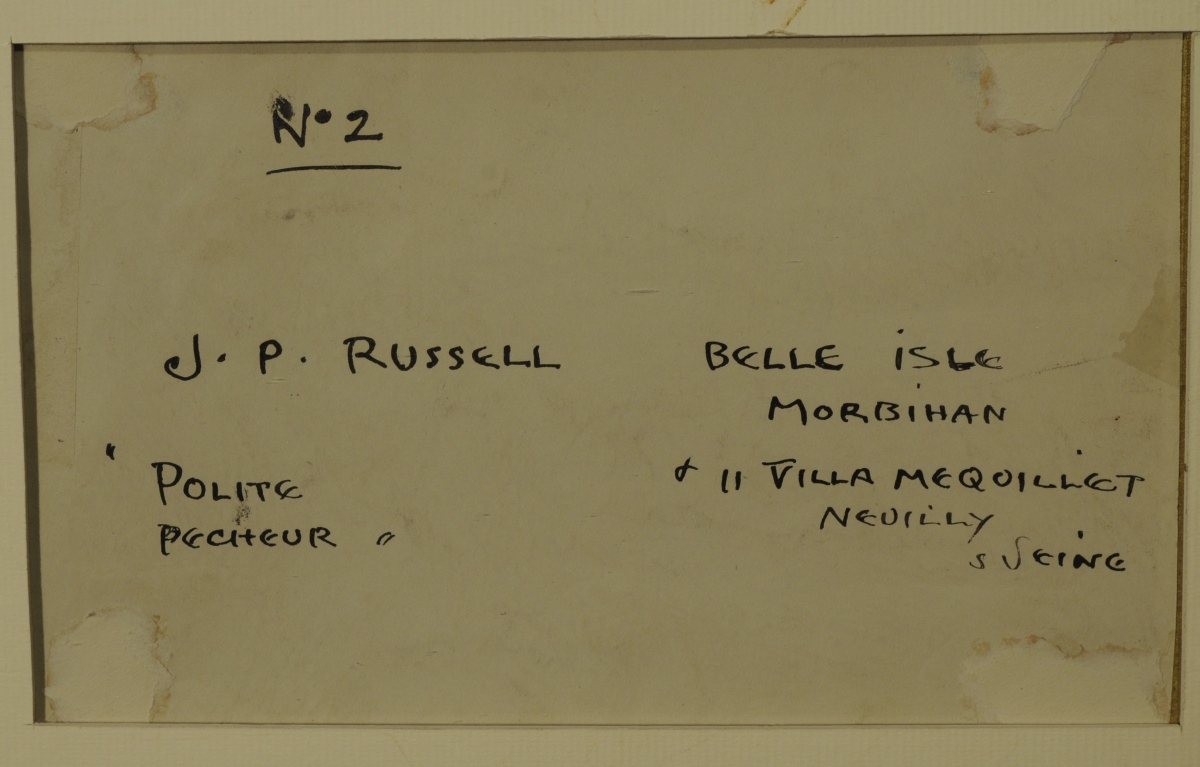 No 2
J. P. RUSSELL
" POLITE
PECHEUR "
BELLE ISLE
MORBIHAN
& 11 VILLA MEQUILLET
NEUILLY
s SEINE